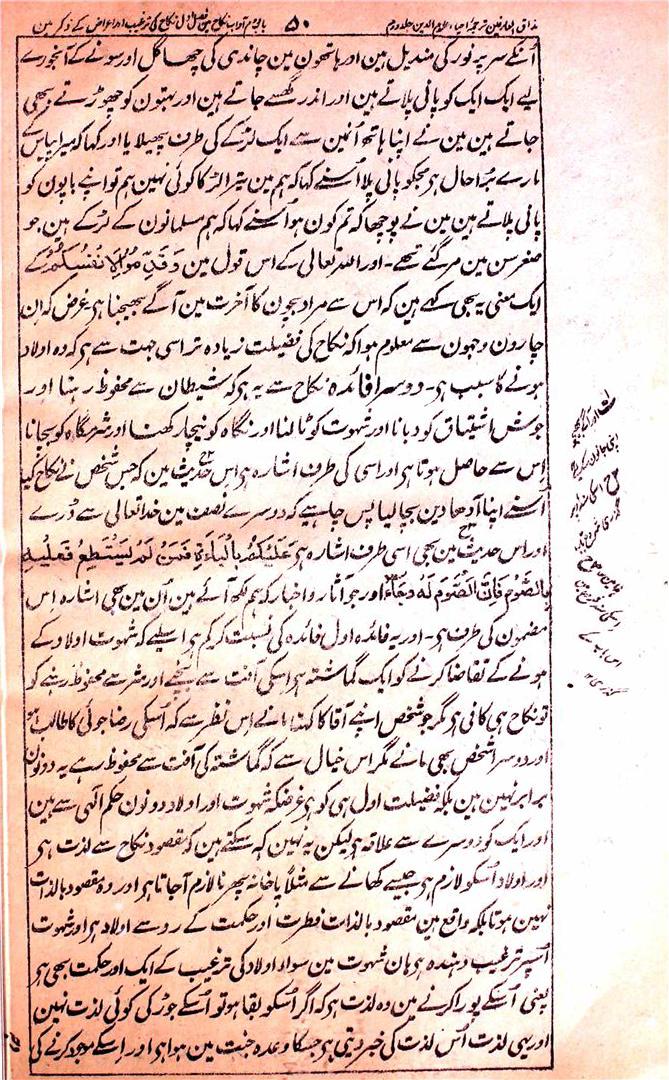 مذاق العارفین ترجمۂ احیاء علوم الدین جلد دوم ۵۰ باب دوم آداب نکاح مین فصل اول نکاح کی ترغیب اور اعراض کے ذکر مین
اُنکے سر پہ نور کی مندیل ہین اور ہاتھون مین چاندی کی چھاگل اور سونے کے آبخورے
لیے ایک ایک کو پانی پلاتے ہین اور اندر گھسے جاتے ہین اور بہتون کو چھوڑتے بھی
جاتے ہین مین نے اپنا ہاتھ اُنمین سے ایک لڑکے کی طرف پھیلایا اور کہا کہ میرا پیاس کے
مارے بُرا حال ہر مجکو پانی پلا اُسنے کہا کہ ہم مین تیرا لڑکا کوئی نہین ہم تو اپنے باپون کو
پانی پلاتے ہین مین نے پوچھا کہ تم کون ہو اُسنے کہا کہ ہم مسلمانون کے لڑکے ہین جو
صغر سن مین مر گئے تھے۔ اور اللہ تعالی کے اس قول مین وَقَدِّمُوْا لِاَنْفُسِکُمْ کے
ایک معنی یہ بھی کہے ہین کہ اس سے مراد بچون کا آخرت مین آگے بھیجنا ہر غرض کہ اِن
چارون وجہون سے معلوم ہوا کہ نکاح کی فضیلت زیادہ تر اسی جہت سے ہر کہ وہ اولاد
ہونے کا سبب ہر۔ دوسرا فائدہ نکاح سے یہ ہر کہ شیطان سے محفوظ رہنا اور
جوش اشتیاق کو دبانا اور شہوت کو ٹالنا اور نگاہ کو نیچا رکھنا اور شرمگاہ کو بچانا
اِس سے حاصل ہوتا ہر اور اسی کی طرف اشارہ ہر اِس حدیث مین کہ جس شخص نے نکاح کیا
اُسنے اپنا آدھا دین بچا لیا پس چاہیے کہ دوسرے نصف مین خدا تعالی سے ڈرے
اور اس حدیث مین بھی اسی طرف اشارہ ہر عَلَیْکُمْ بِالْبَاءَۃِ فَمَنْ لَمْ یَسْتَطِعْ فَعَلَیْہِ
بِالصَّوْمِ فَاِنَّ الصَّوْمَ لَہٗ وِجَاءٌ اور جو آثار و اخبار کہ ہم لکھ آئے ہین اُن مین بھی اشارہ اِس
مضمون کی طرف ہر۔ اور یہ فائدہ اول فائدہ کی نسبت کر کم ہر اسلیے کہ شہوت اولاد کے
ہونے کے تقاضا کرنے کو ایک گماشتہ ہر اسکی آفت سے بچنے اور شر سے محفوظ رہنے کو
تو نکاح ہی کافی ہر مگر جو شخص اپنے آقا کا کہنا مانے اس نظر سے کہ اُسکی رضا جوئی کا طالب ہو
اور دوسرا شخص بھی مانے مگر اس خیال سے کہ گماشتہ کی آفت سے محفوظ رہے یہ دونون
برابر نہین ہین بلکہ فضیلت اول ہی کو ہر غرضکہ شہوت اور اولاد دونون حکم الہی سے ہین
اور ایک کو دوسرے سے علاقہ ہر لیکن یہ نہین کہہ سکتے ہین کہ مقصود نکاح سے لذت ہر
اور اولاد اُسکو لازم ہر جیسے کھانے سے مثلاً پاخانہ پھرنا لازم آجاتا ہر اور وہ مقصود بالذات
نہین ہوتا بلکہ واقع مین مقصود بالذات فطرت اور حکمت کے رو سے اولاد ہر اور شہوت
اُسپر ترغیب دہندہ ہر ہان شہوت مین سواے اولاد کی ترغیب کے ایک اور حکمت بھی ہر
یعنی اُسکے پورا کرنے مین وہ لذت ہر کہ اگر اُسکو بقا ہو تو اُسکے جوڑ کی کوئی لذت نہین
اور یہی لذت اُس لذت کی خبر دیتی ہر جسکا وعدہ جنت مین ہوا ہر اور اِسکے موجود کرنے کی